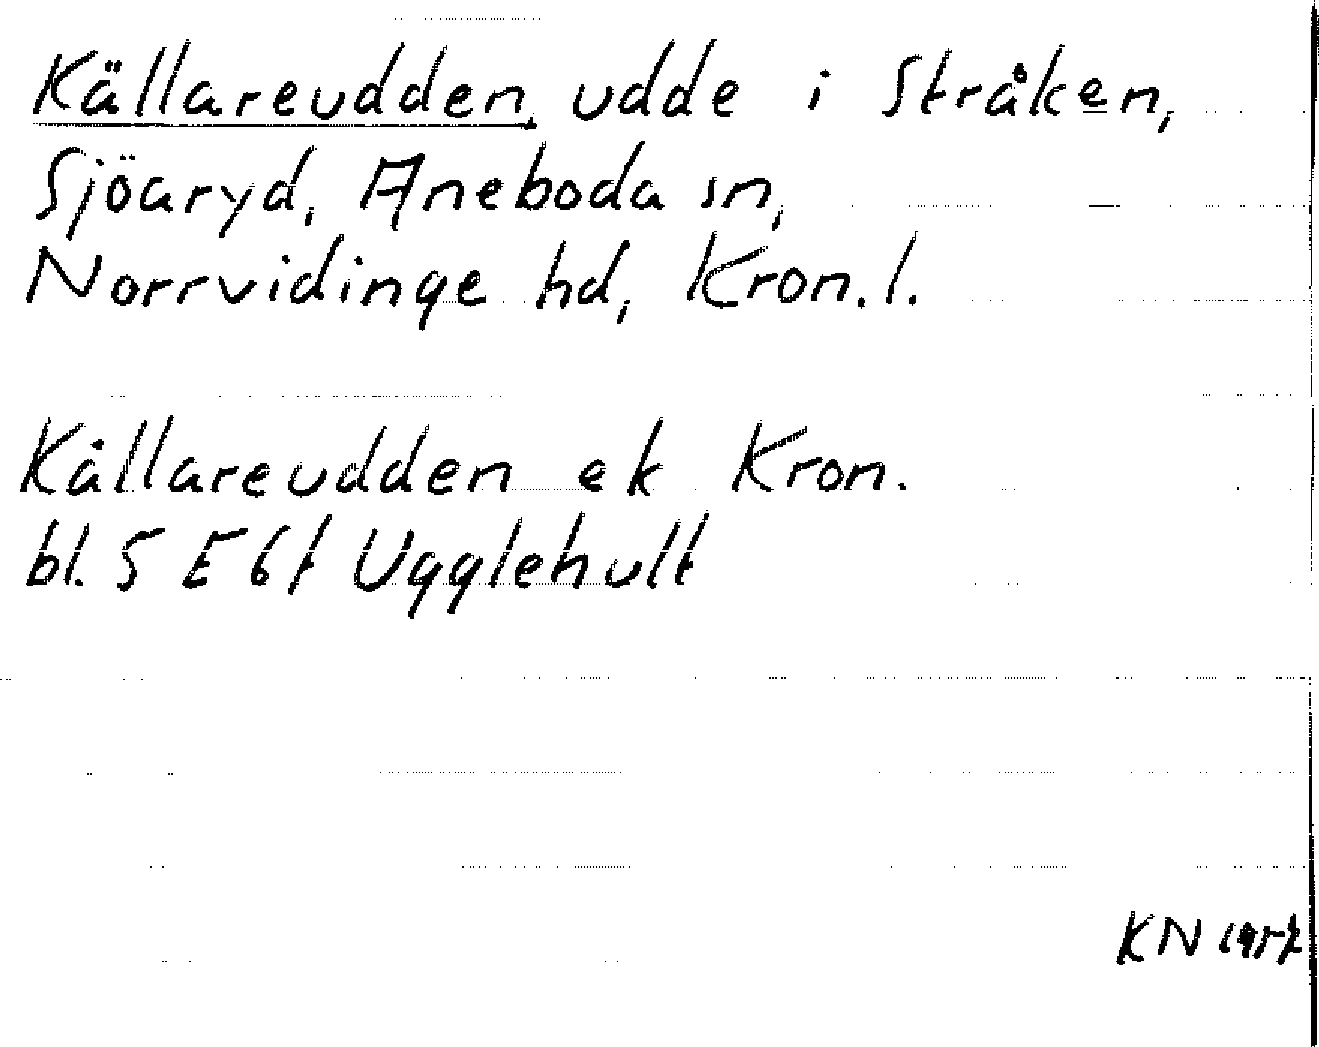 Källareudden, udde i Stråken,
Sjöaryd, Aneboda sn,
Norrvidinge hd, Kron. l.
Källareudden ek Kron.
bl. 5 E 6f Ugglehult
KN 1957